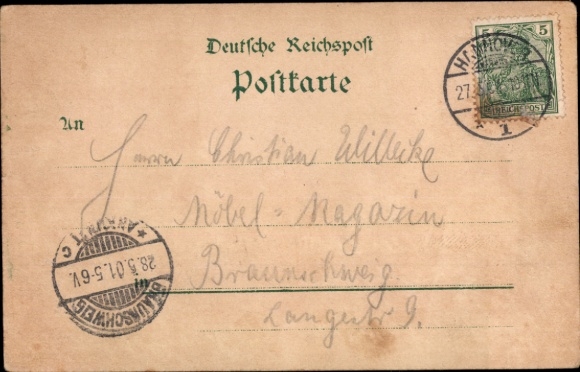 Deutsche Reichspost
Postkarte
5 5
REICHSPOST
HANNOVER
27.
* 1
An
Herrn Christian Willecke
Möbel-Magazin
Braunschweig.
Langestr 9.
* ANKUNFT C
28.5.01.5-6V.
BRAUNSCHWEIG